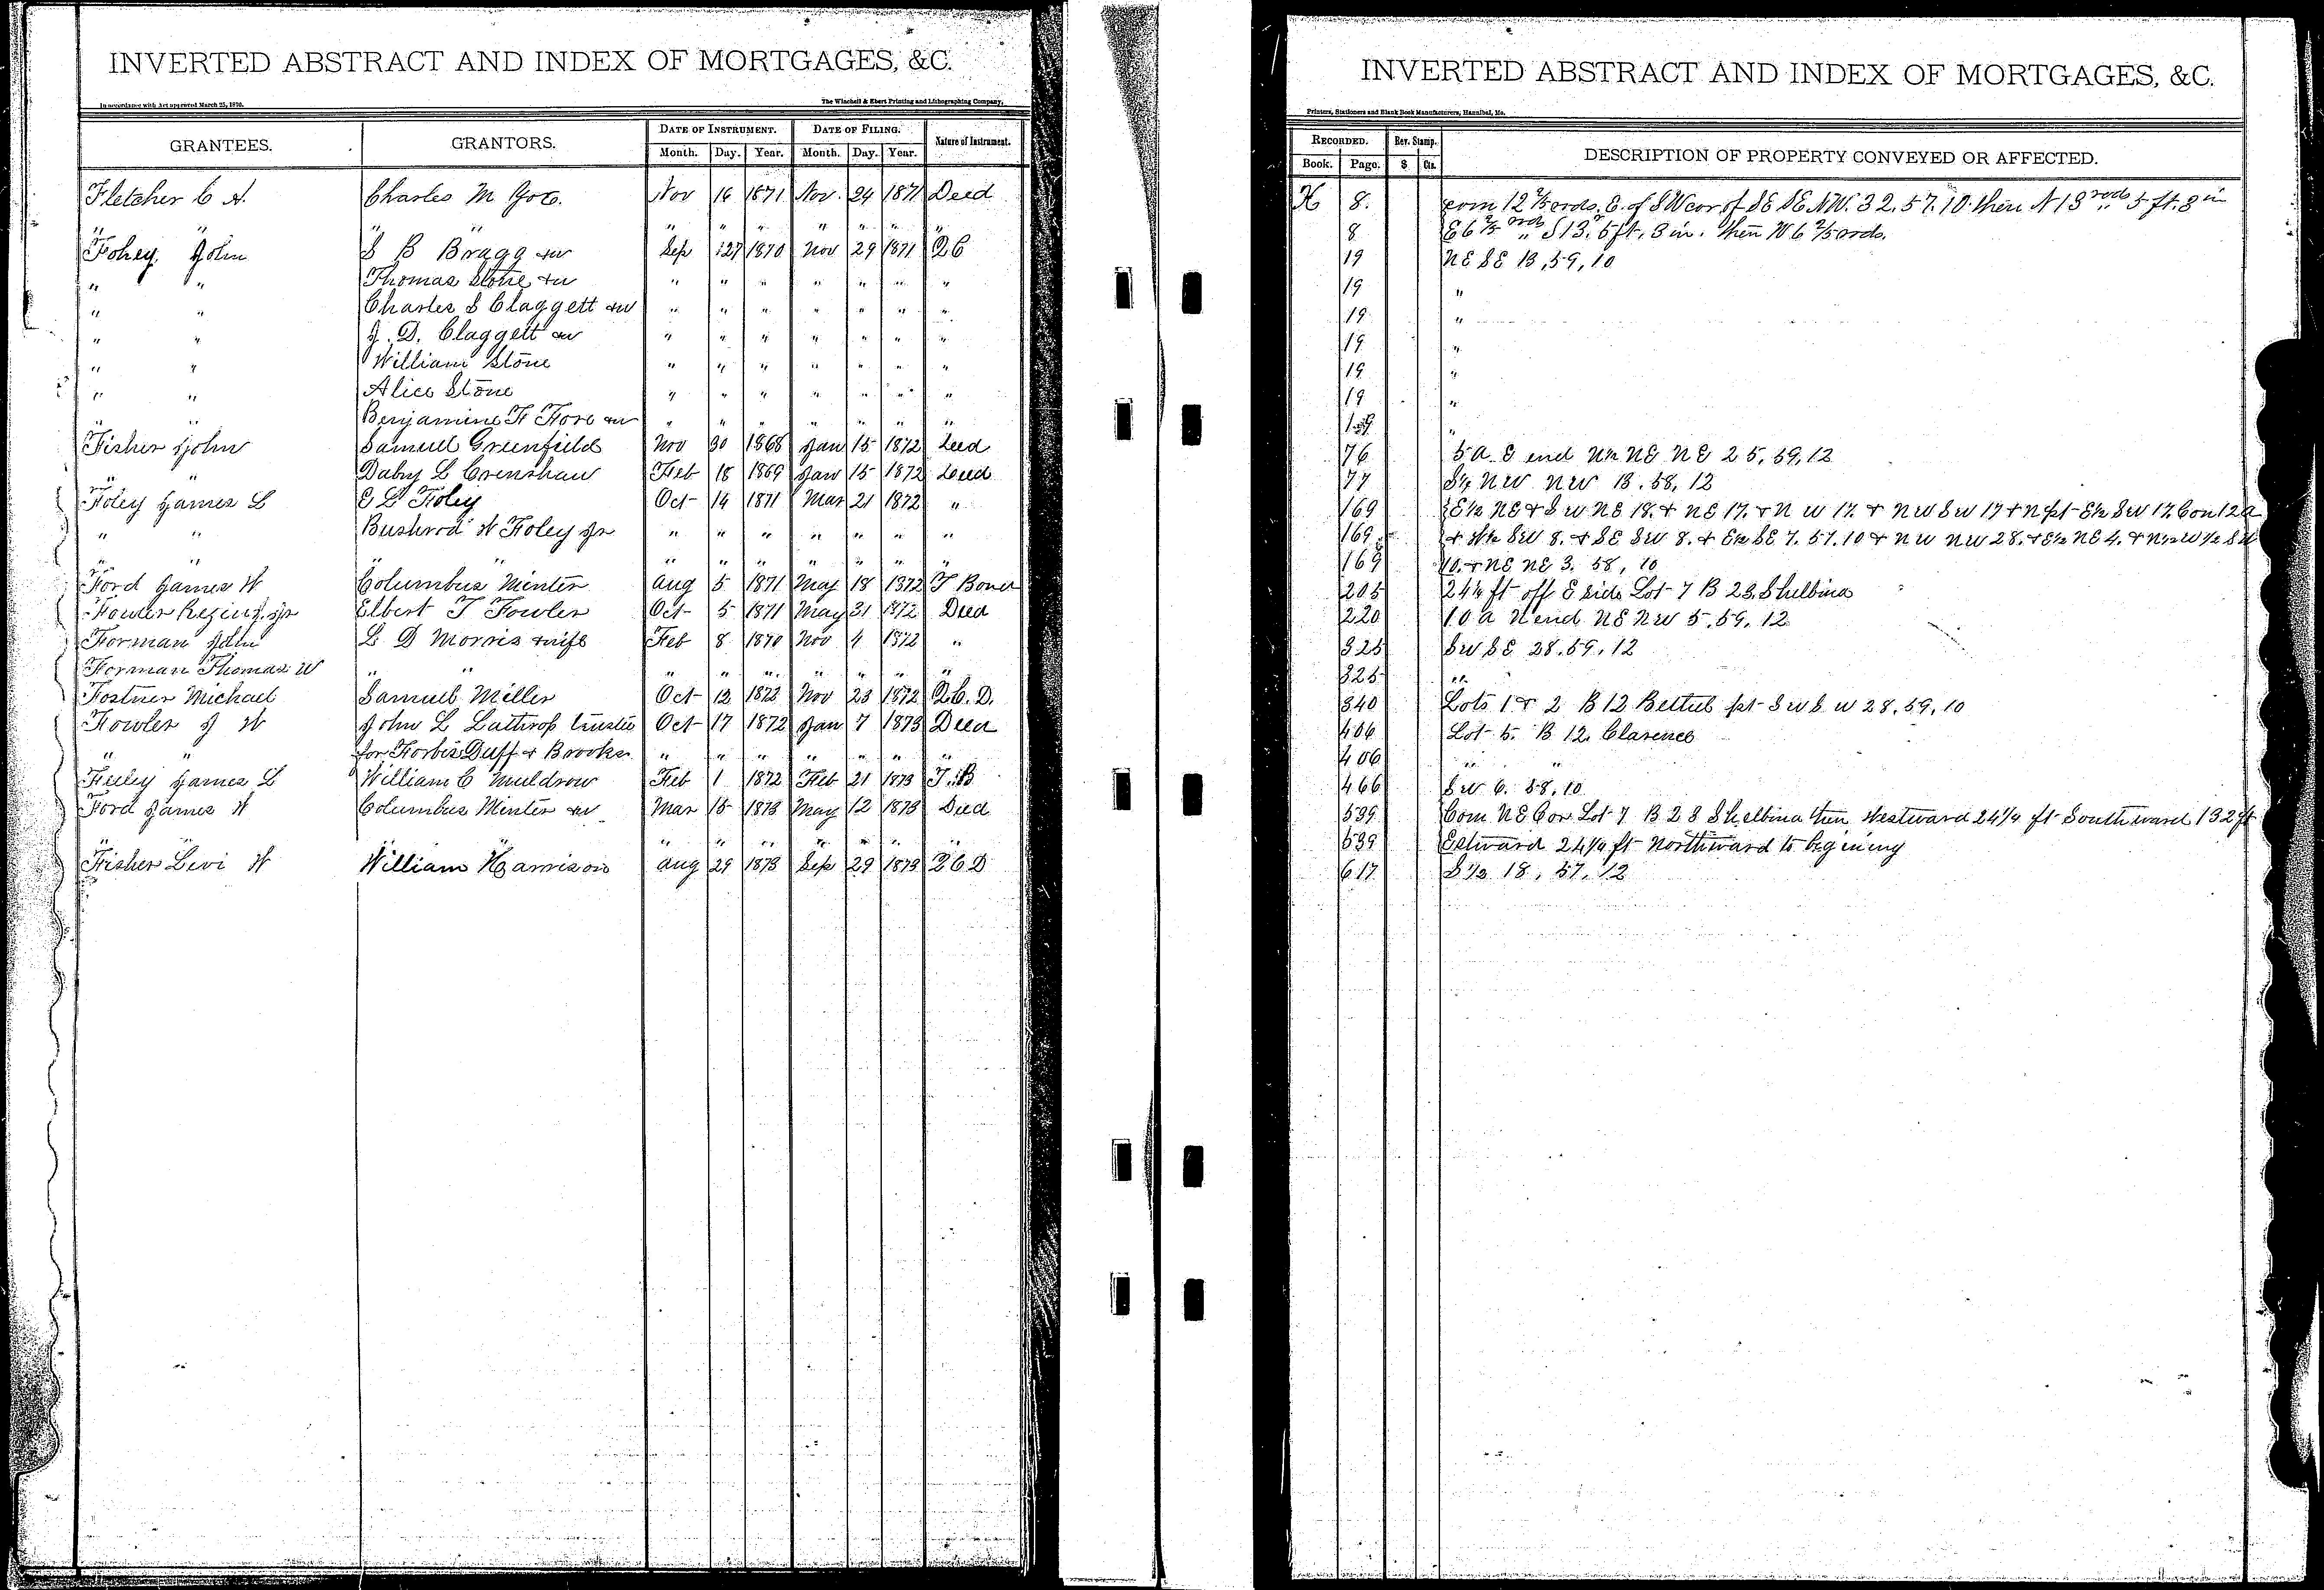 INVERTED ABSTRACT AND INDEX OF MORTGAGES, &C.
In accordance with Act approved March 25, 1870.
The Winchell & Ebert Printing and Lithographing Company,
GRANTEES. GRANTORS. DATE OF INSTRUMENT. DATE OF FILING. Nature of Instrument.
Month. Day. Year. Month. Day. Year.
Fletcher C A. Charles M Goe. Nov 16 1871 Nov. 24 1871 Deed
" " " " " " " " "
Fohey, John S B Bragg &w Sep 27 1870 Nov 29 1871 QC
" " Thomas Stone &w " " " " " " "
" " Charles S Claggett &w " " " " " " "
" " J. D. Claggett &w " " " " " " "
" " William Stone " " " " " " "
" " Alice Stone " " " " " " "
" " Benjamine F Fore &w " " " " " " "
Fisher John Samuel Greenfield Nov 30 1868 Jan 15 1872 Deed
" " Dabny L Crenshaw Feb 18 1869 Jan 15 1872 Deed
Foley James L E L Foley Oct 14 1871 Mar 21 1872 "
" " Bushrod W Foley Jr " " " " " "
" " " " " " " " " "
Ford James W Columbus Minter Aug 5 1871 May 18 1872 T Bond
Fowler Jr Elbert T Fowler Oct 5 1871 May 31 1872 Deed
Forman John L D Morris &wife Feb 8 1870 Nov 4 1872 "
Forman Thomas W " " " " " " " "
Fostner Michael Samuel Miller Oct 12 1872 Nov 23 1872 Q.C.D.
Fowler J W John L Lathrop trustee Oct 17 1872 Jan 7 1873 Deed
" " for Forbis Duff & Brooks " " " " " "
Foley James L William C Muldrow Feb 1 1872 Feb 21 1873 T.B
Ford James W Columbus Minter &w Mar 15 1873 May 12 1873 Deed
" " " " " " " "
Fisher Levi W William Harrison Aug 29 1873 Sep 29 1873 QCD
INVERTED ABSTRACT AND INDEX OF MORTGAGES, &C.
Printers, Stationers and Blank Book Manufacturers, Hannibal, Mo.
RECORDED. Rev. Stamp. DESCRIPTION OF PROPERTY CONVEYED OR AFFECTED.
Book. Page. $ Cts.
H 8. com 12 2/5 rods. E. of SW cor of SE SE NW. 32. 57. 10. then N 13 rods 5 ft. 3 in
8 E 6 2/5 rods S 13. 5 ft, 3 in. then W 6 2/5 rods.
19 NE SE 13, 59, 10
19 "
19 "
19 "
19 "
19 "
19 "
76 5 a. E end N½ NE NE 25, 59, 12
77 NW NW 13. 58, 12
169 E½ NE & SW NE 18. & NE 17. & NW 17. & NW SW 17 & N pt E½ SW 17. Con 12 a
169 & W½ SW 8. & SE SW 8. & E½ SE 7. 57. 10 & NW NW 28. & E½ NE 4. &
169 10. & NE NE 3. 58, 10
205 24¼ ft off E side Lot 7 B 23. Shelbina
220 10 a N end NE NW 5. 59. 12
325 SW SE 28. 59. 12
325 "
340 Lots 1 & 2 B 12 Bethel pt SW SW 28, 59, 10
406 Lot 5. B 12. Clarence
406 " "
466 SW 6. 58, 10
539 Com NE Cor Lot 7 B 23 Shelbina then Westward 24¼ ft Southward 132 ft
539 Estward 24¼ ft Northward to begining
617 S½ 18, 57, 12